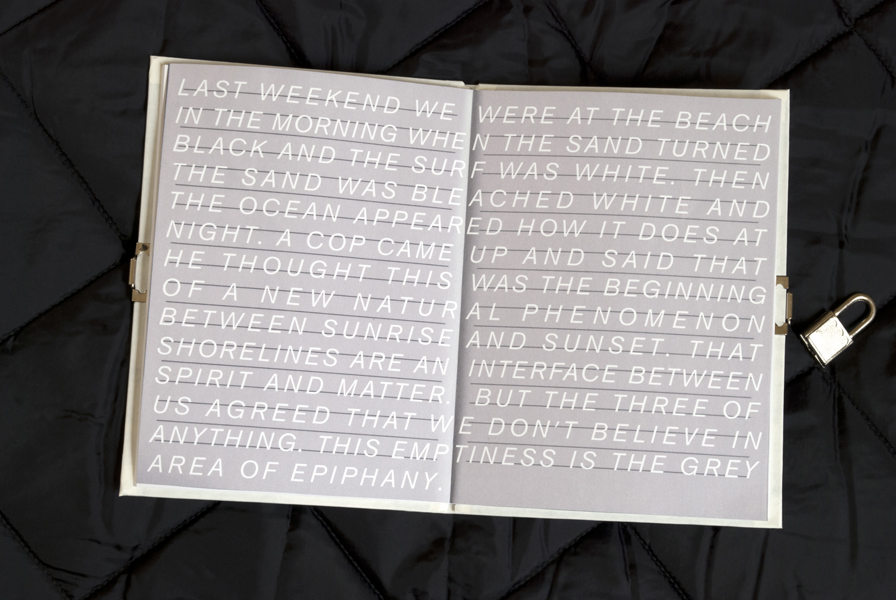 LAST WEEKEND WE WERE AT THE BEACH
IN THE MORNING WHEN THE SAND TURNED
BLACK AND THE SURF WAS WHITE. THEN
THE SAND WAS BLEACHED WHITE AND
THE OCEAN APPEARED HOW IT DOES AT
NIGHT. A COP CAME UP AND SAID THAT
HE THOUGHT THIS WAS THE BEGINNING
OF A NEW NATURAL PHENOMENON
BETWEEN SUNRISE AND SUNSET. THAT
SHORELINES ARE AN INTERFACE BETWEEN
SPIRIT AND MATTER. BUT THE THREE OF
US AGREED THAT WE DON'T BELIEVE IN
ANYTHING. THIS EMPTINESS IS THE GREY
AREA OF EPIPHANY.